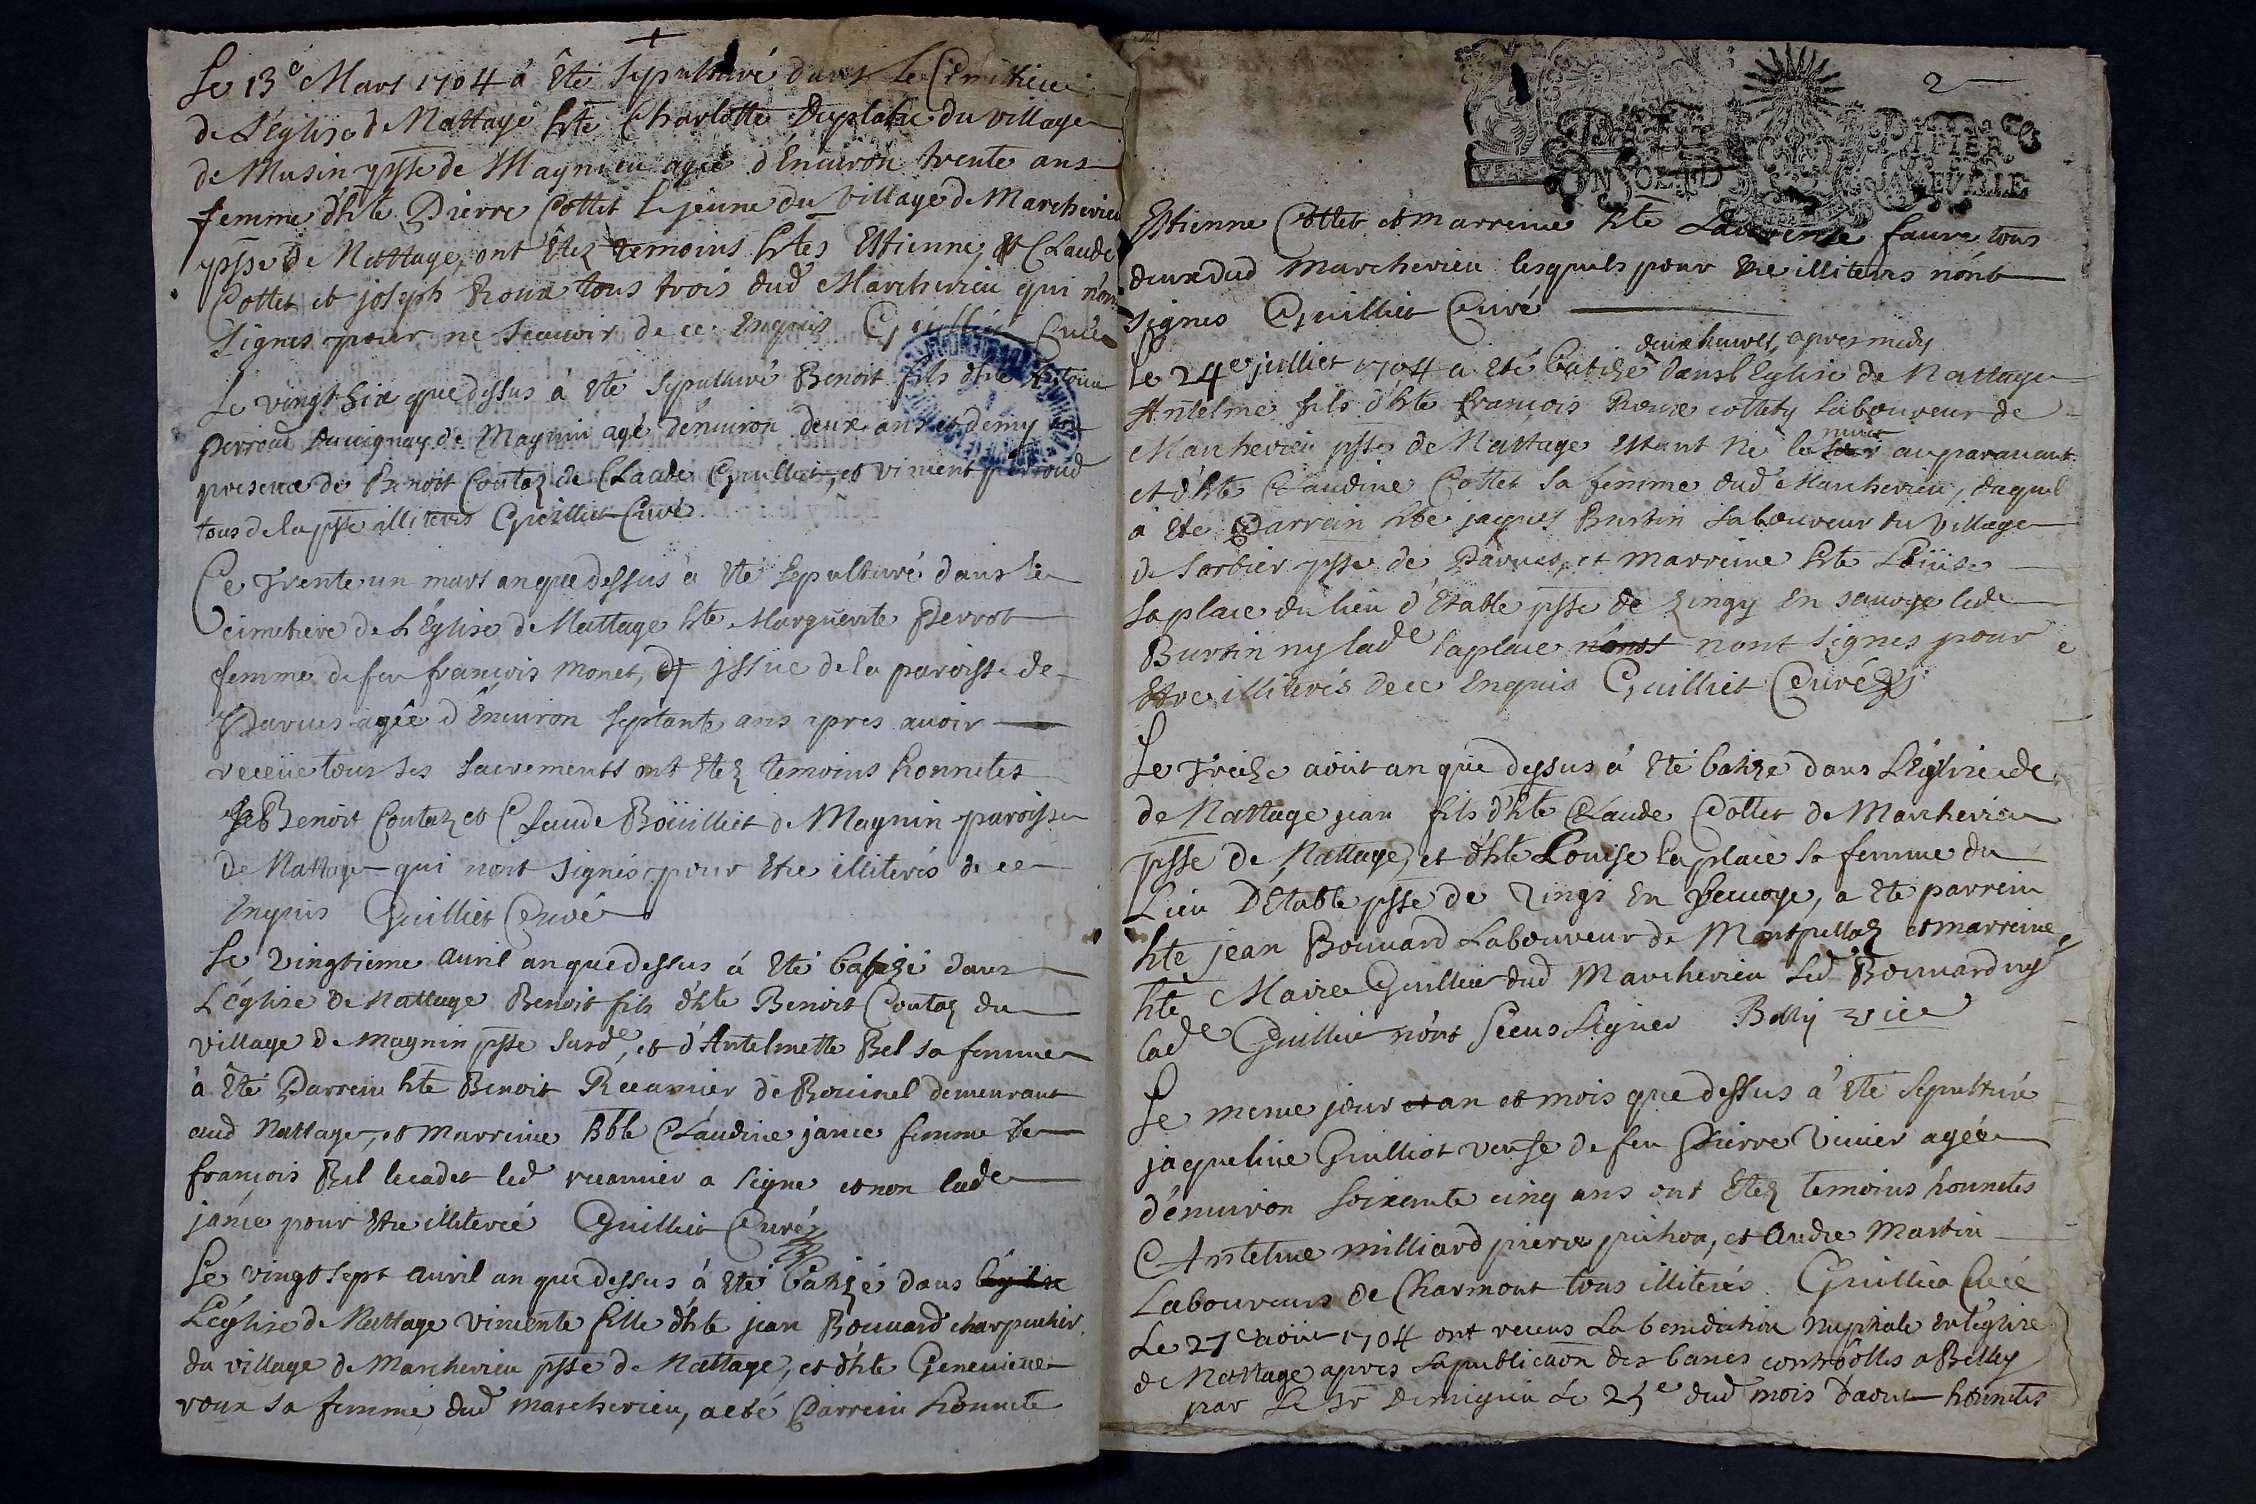 Le 13e Mars 1704 à été sepulturé dans le Cimitiere
de L'église de Nattage hte Charlotte Deplace du village
de Musin psse de Magnieu agée d'Enuiron trente ans
femme d'hte Pierre Cottet le jeune du village de Marcherieu
psse de Nattage, ont étez temoins htes Estienne, et Claude
Cottet et joseph Roux tous trois dud Marcherieu qui n'ont
signes pour ne scauoir de ce Enquis Guilliet Curé
Le vingt six que dessus à été sepulturé Benoit fils d'hte
perroud de Magnin agé d'énuiron deux ans et demy en
presence de Benoit Coutaz de Claude Guilliet, et vincent perroud
tous de la psse illiterés Guilliet Curé
Ce Trente un mars an que dessus à été sepulturé dans le
cimetiere de L'Eglise de Nattage hte Marguerite Perrot
femme de feu françois monet, jssüe de la paroisse de
Parues agée d'Enuiron septante ans apres auoir
receüe tous ses sacrements ont étez temoins honnetes
Benoit Coutaz et Claude Boüilliet de Magnin paroisse
de Nattage qui n'ont signés pour etre illiterés de ce
enquis Guilliet Curé
Le vingtieme auril an que dessus à été batizé dans
L'église de Nattage Benoit fils d'hte Benoit Coutaz du
village de magnin psse susde, et d'Antelmette Bel sa femme
à été Parrein hte Benoit Recamier de Rouinel demeurant
aud Nattage, et marreine hble Claudine janie femme de
françois Bel le cadet led recamier a signe et non lade
janie pour etre illiterée Guilliet Curé
Le vingt sept auril an que dessus à été batizé dans l'eglise
L'église de Nattage vincente fille d'hte jean Bouuard charpentier
du village de Marcherieu psse de Nattage, et d'hte Geneuieue
roux sa femme, dud marcherieu, a eté Parrein honnete
2
Estienne Cottet et marreine hte Laurence faure tous
deux dud Marcherieu lesquels pour etre illiterés n'ont
signes Guilliet Curé
deux heures, apres midy
Le 24e julliet 1704 a eté batizé dans l'Eglise de Nattage
Antelme fils d'hte françois Roux cottety laboureur de
Marcherieu psse de Nattage Estant né la soir nuit auparauant
et d'hte Claudine Cottet sa femme dud Marcherieu, duquel
à été Parrein hte jaques Burtin laboureur du village
de Sorbier psse de Parues, et marreine hte Loüise
laplace du lieu d'Etable psse de zingy En sauoye led
Burtin ny lade laplace n'ont nont signes pour
Etre illiterés de ce Enquis Guilliet Curé
Le Treize aoüt an que dessus à été batizé dans L'église de
de Nattage jean fils d'hte Claude Cottet de Marcherieu
psse de Nattage, et d'hte Louise laplace sa femme du
Lieu D'Etable psse de zingi En sauoye, a été parrein
hte jean Bouuard Laboureur de Montpellaz et marreine
hte Marie Guilliet dud Marcherieu led Bouuard ny
lade Guilliet n'ont sceus signer Belly vice
Le meme jour et an et mois que dessus à été sepulturé
jaqueline Guilliot veufe de feu Pierre viuier agée
d'énuiron soixante cinq ans ont étez temoins honnetes
Antelme milliard pierre pichon, et Andre Martin
Laboureurs de Charmont tous illiterés. Guilliet Curé
Le 27e aoüt 1704 ont receus la benediction nuptiale En l'église
de Nattage apres la publication des bancs controolles a Belley
par le Sr Demignin le 25e dud mois d'aoust honnetes